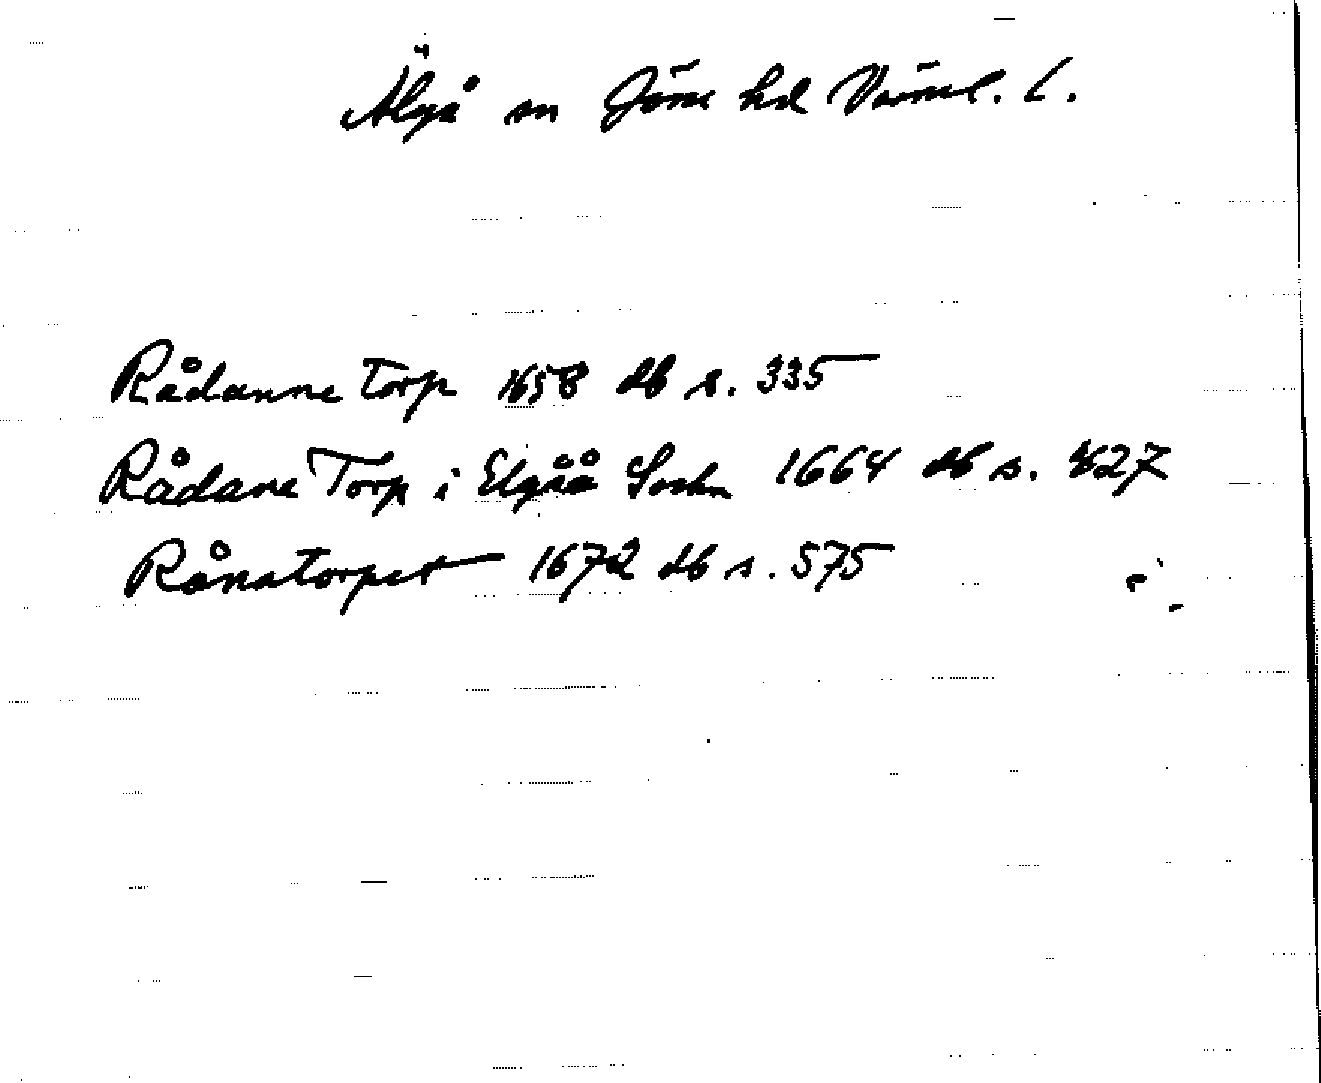 Älgå sn Jösse hd Värml. l.
Rådanne torp 1658 db s. 335
Rådane Torp i Elgåå Sochn 1664 db s. 827
Rånatorpet 1672 db s. 575